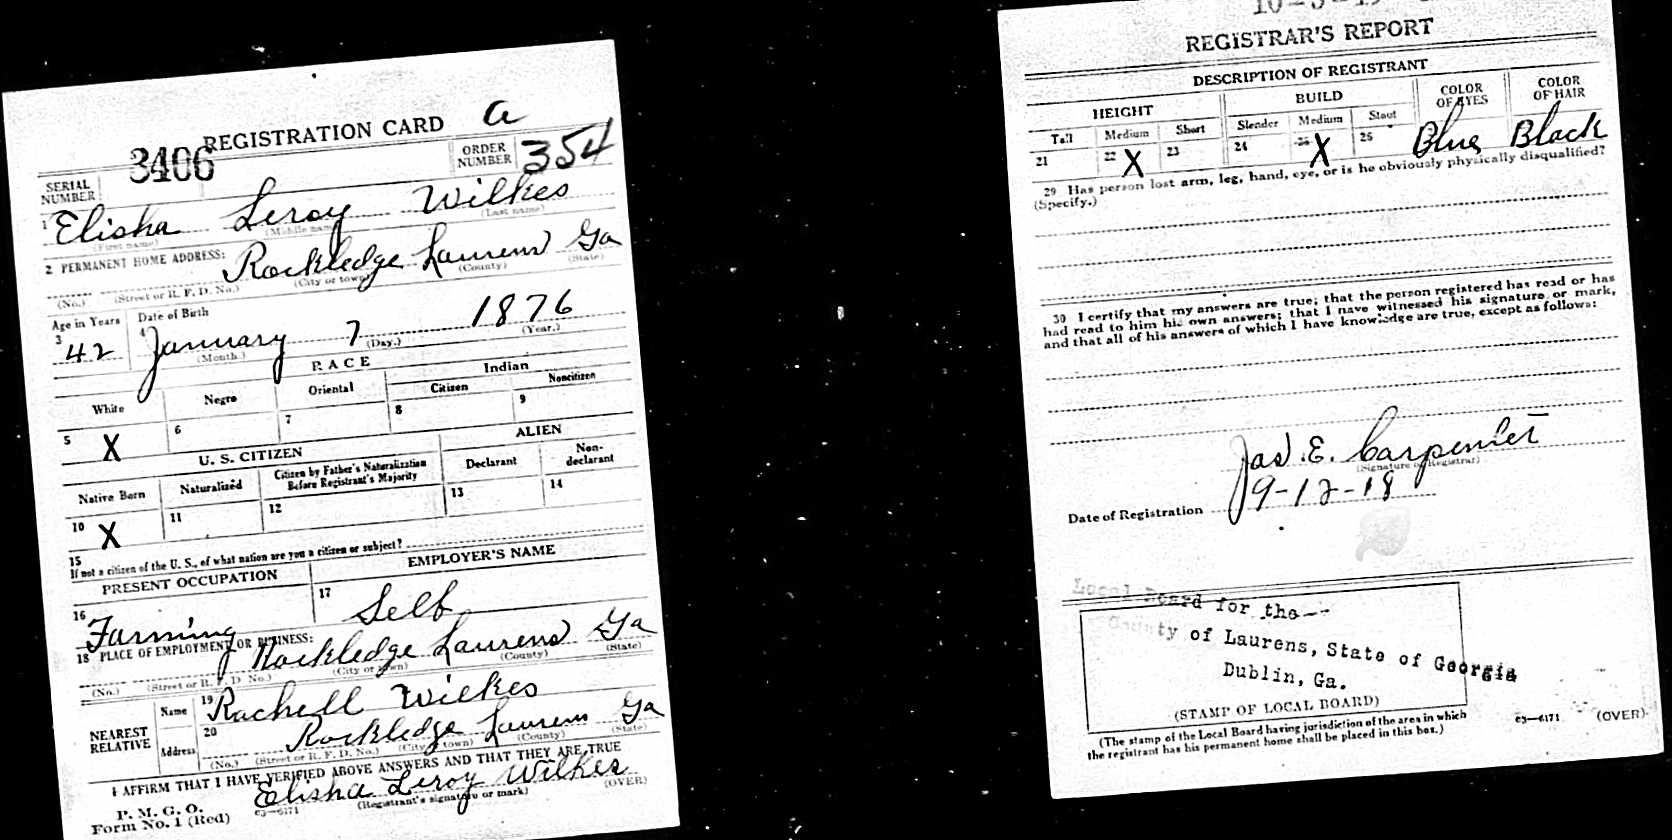 REGISTRATION CARD a
SERIAL NUMBER 3406 ORDER NUMBER 354
1 Elisha Leroy Wilkes
(First name) (Middle name) (Last name)
2 PERMANENT HOME ADDRESS: Rockledge Laurens Ga
(No.) (Street or R. F. D. No.) (City or town) (County) (State)
Age in Years Date of Birth
3 42 4 January 7 1876
(Month.) (Day.) (Year.)
RACE
White Negro Oriental Indian
Citizen Noncitizen
5 X 6 7 8 9
U. S. CITIZEN ALIEN
Native Born Naturalized Citizen by Father's Naturalization Before Registrant's Majority Declarant Non-declarant
10 X 11 12 13 14
15
If not a citizen of the U. S., of what nation are you a citizen or subject?
PRESENT OCCUPATION EMPLOYER'S NAME
16 Farming 17 Self
18 PLACE OF EMPLOYMENT OR BUSINESS: Rockledge Laurens Ga
(No.) (Street or R. F. D. No.) (City or town) (County) (State)
NEAREST RELATIVE Name 19 Rachell Wilkes
Address 20 Rockledge Laurens Ga
(No.) (Street or R. F. D. No.) (City or town) (County) (State)
I AFFIRM THAT I HAVE VERIFIED ABOVE ANSWERS AND THAT THEY ARE TRUE
P. M. G. O.
Form No. 1 (Red) c3—6171 Elisha Leroy Wilkes
(Registrant's signature or mark) (OVER)
REGISTRAR'S REPORT
DESCRIPTION OF REGISTRANT
HEIGHT BUILD COLOR OF EYES COLOR OF HAIR
Tall Medium Short Slender Medium Stout
21 22 X 23 24 25 X 26 Blue Black
29 Has person lost arm, leg, hand, eye, or is he obviously physically disqualified?
(Specify.)
30 I certify that my answers are true; that the person registered has read or has
had read to him his own answers; that I have witnessed his signature or mark,
and that all of his answers of which I have knowledge are true, except as follows:
Jas. E. Carpenter
(Signature of Registrar)
Date of Registration 9-12-18
Local Board for the--
County of Laurens, State of Georgia
Dublin, Ga.
(STAMP OF LOCAL BOARD)
(The stamp of the Local Board having jurisdiction of the area in which
the registrant has his permanent home shall be placed in this box.)
c3—6171 (OVER)